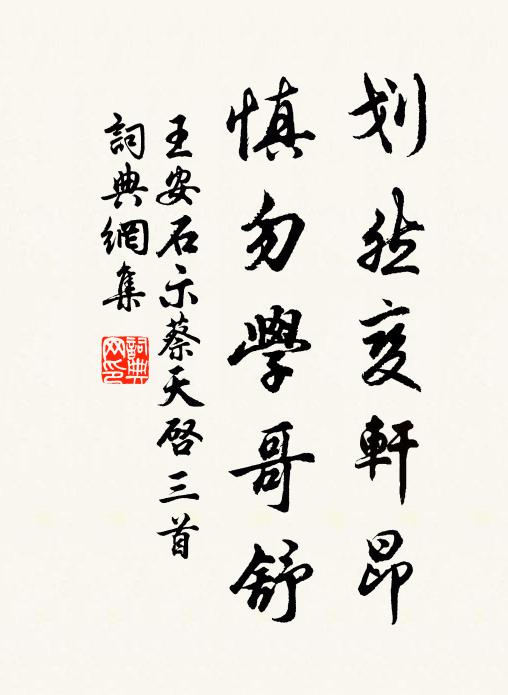 划然变軒昂
慎勿學哥舒
王安石示蔡天啓三首
詞典網集
詞典网印